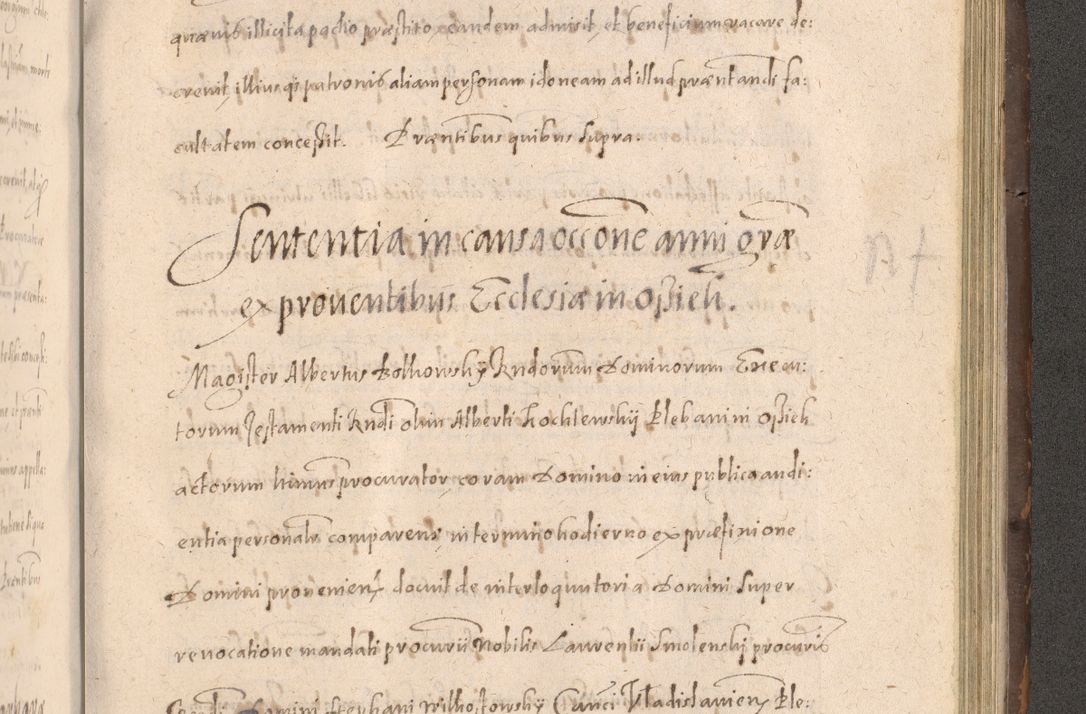 quævis illicita pactio præstito, eandem admisit, et beneficium vacare de:
crevit, illiusqs patronis aliam personam idoneam ad illud præntandi fa:
cultatem conceßit. Præntibus quibus supra.
Sententia in causa occone anni græ
ex proventibus Ecclesiæ in Oßieli.
Magister Albertus Bolhowsky Rndorum Dominorum Execu:
torum Testamenti Rndi olim Alberti Kochlewskij Plebani in Oßieli
actorum himus procurator, coram Domino in eius publica audi:
entia personalr comparens, in termino hodierno ex præfinione
Domini provenien, docuit de interloquutoria Domini super
revocatione mandati procurii Nobilis Laurentii Smolenskj procuris
Rndi Domini Stephani Wilhostowsky Canci Vladislavien Ple: